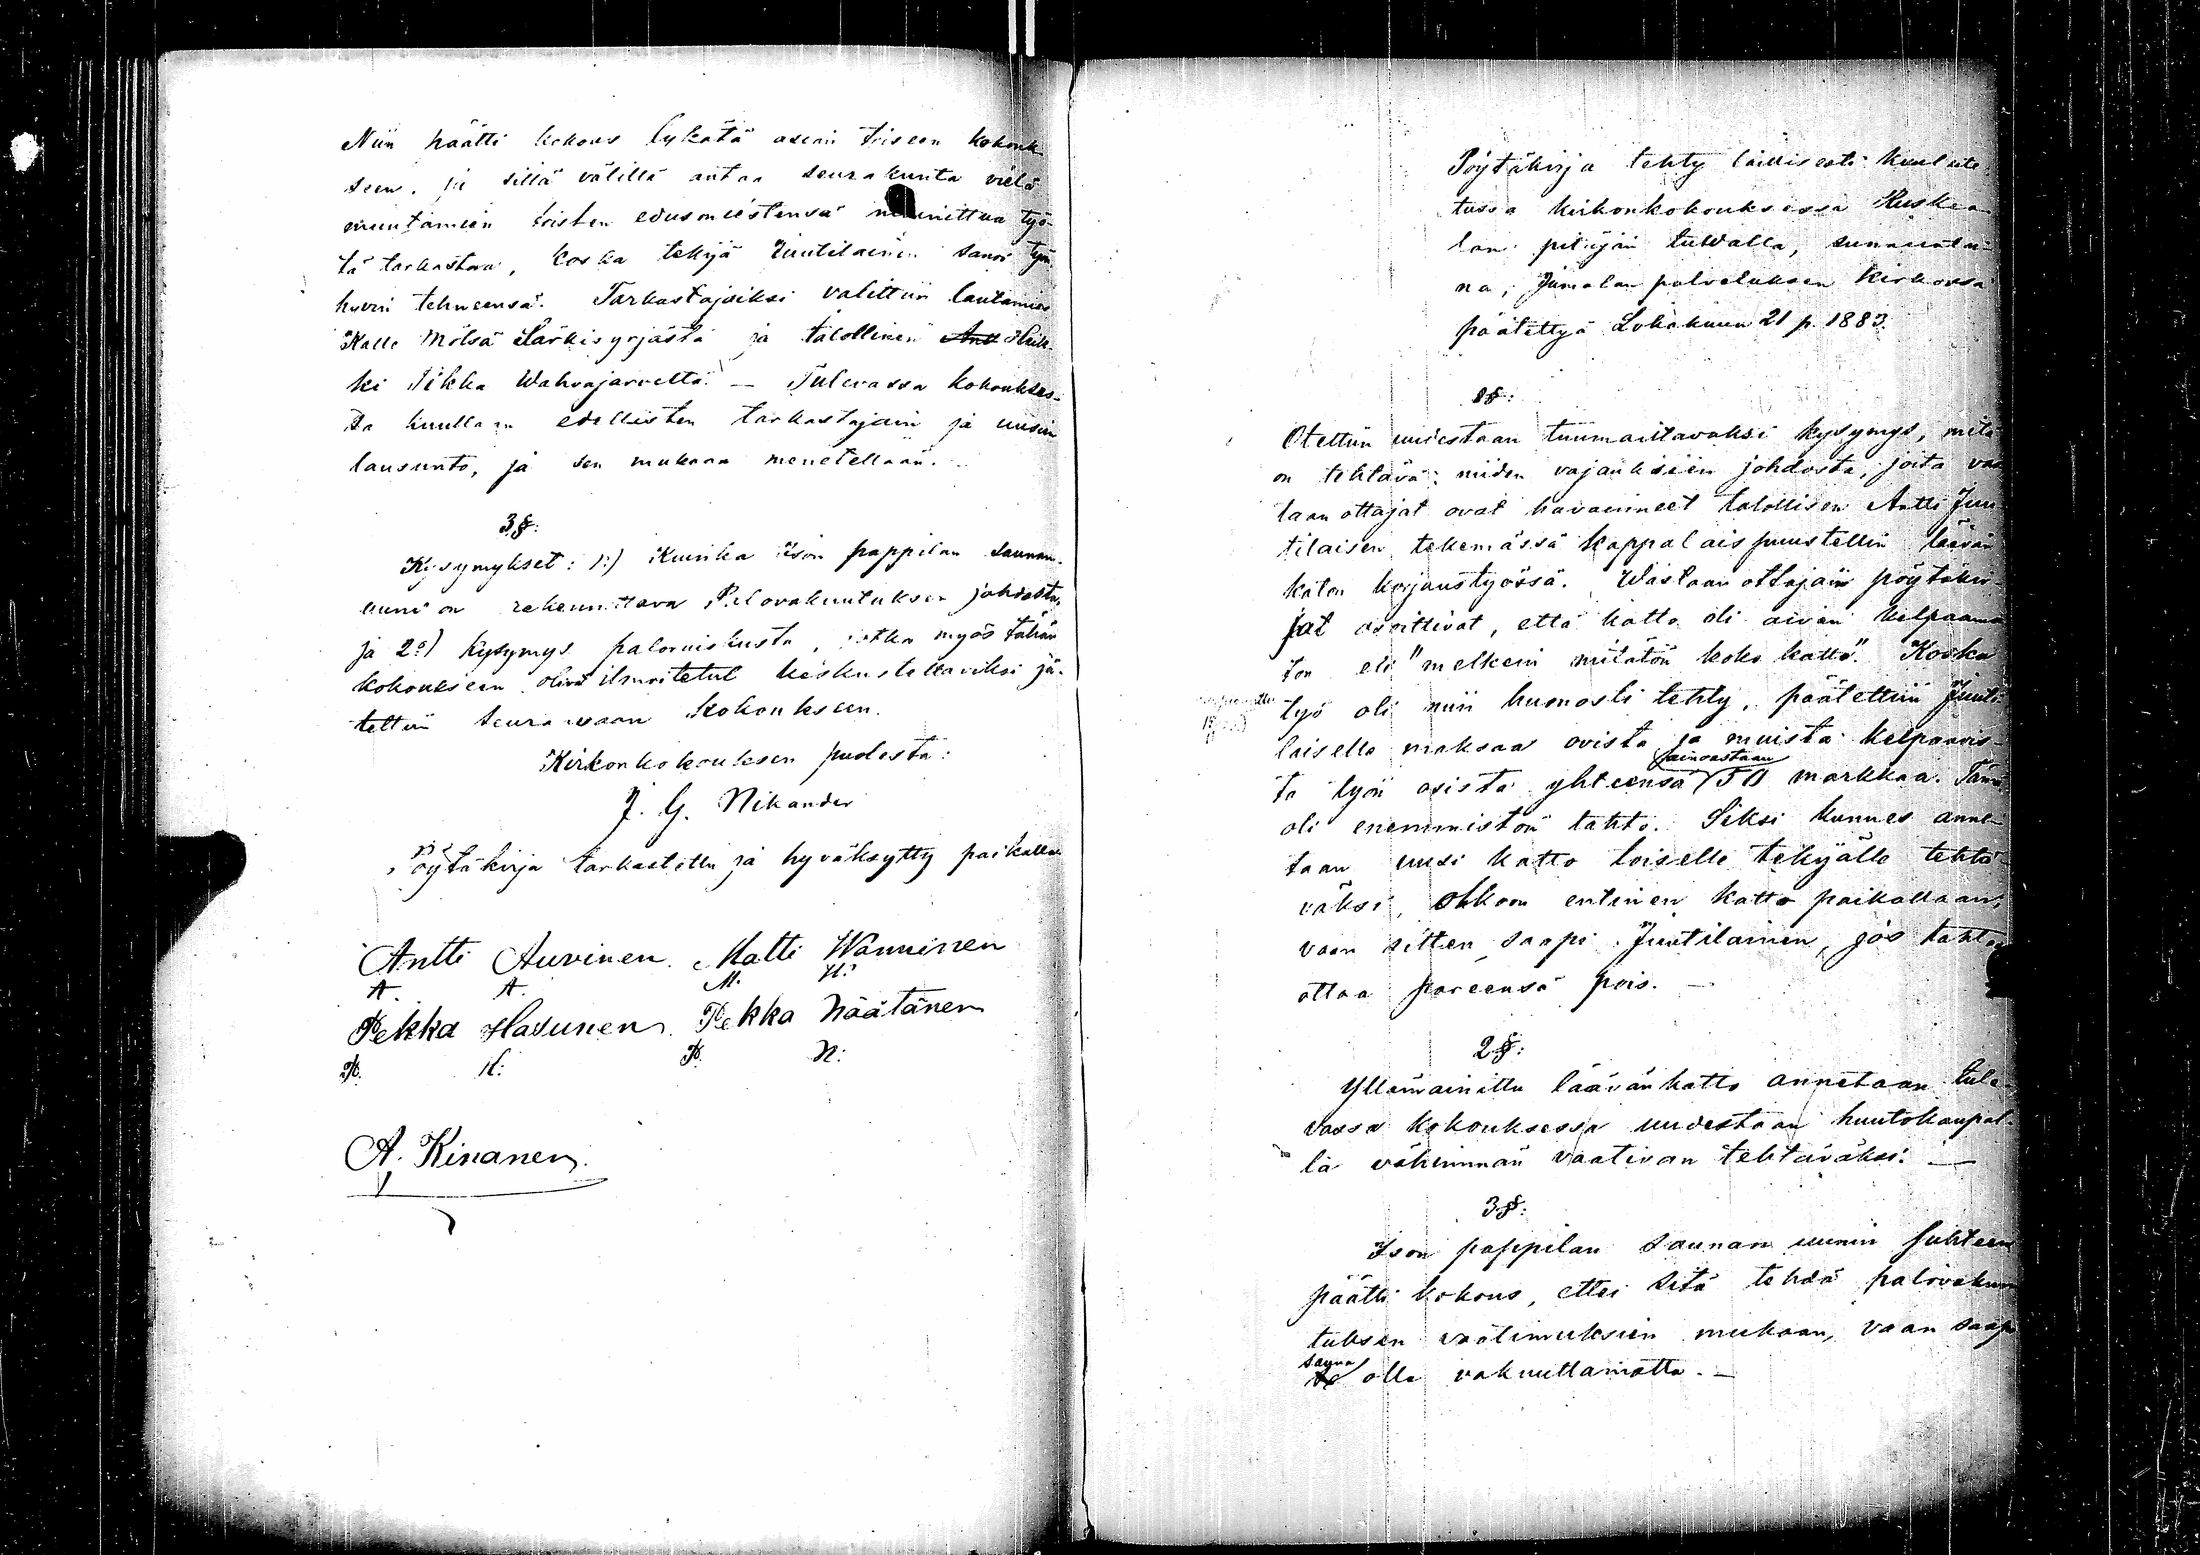 Niin päätti kokous lykätä asian toiseen kokouk-
seen, ja sillä välillä antaa seurakunta vielä
muutamien toisten edusmiestensä mainittua työ-
tä tarkastaa, koska tekijä Juutilainen sanoi työn
hyvin tehneensä. Tarkastajaiksi valittiin lautamies
Kalle Mölsä Särkisyrjästä ja talollinen Antt Heik-
ki Pekka Wahvajärveltä. — Tulevassa kokoukses-
sa kuullaan edellisten tarkastajain ja uusien
lausunto, ja sen mukaan menetellään.
3 §:
Kysymykset: 1:) Kuinka Ison pappilan saunan-
uuni on rakennettava Palovakuutuksen johdosta,
ja 2:) kysymys palovniskusta, jotka myös tähän
kokoukseen olivat ilmoitetut keskusteltaviksi jä-
tettiin seuraavaan Kokoukseen.
Kirkonkokouksen puolesta:
J. G. Nikander
Pöytäkirja tarkastettu ja hyväksytty paikalla
Antti Auvinen. Matti Wänninen
A. A. M. W:
Pekka Hasunen. Pekka Näätänen
P. H: P. N:
A. Kinanen.
Pöytäkirja tehty laillisesti kuulute-
tussa kirkonkokouksessa Ruskea-
lan pitäjän tuvalla, sunnuntai-
na, Jumalan palveluksen kirkossa
päätettyä Lokakuun 21 p. 1883.
1 §:
Otettiin uudestaan tuumailtavaksi kysymys, mitä
on tehtävä niiden vajauksien johdosta, joita vas-
taan ottajat ovat havainneet talollisen Antti Juu-
tilaisen tekemässä kappalaispuustellin läävän
katon korjaustyössä. Wastaan ottajain pöytäkir-
jat osoittivat, että katto oli aivan kelpaama-
ton eli "melkein mitätön koko katto". Koska
työ oli niin huonosti tehty, päätettiin Juuti-
laiselle maksaa ovista ja muista kelpaavis-
ta työn osista yhteensä ainoastaan 50 markkaa. Tämä
oli enemmistön tahto. Siksi kunnes anne-
taan uusi katto toiselle tekijälle tehtä-
väksi, olkoon entinen katto paikallaan,
vaan sitten saapi Juutilainen, jos tahtoo
ottaa pareensä pois. —
2 §:
Yllämainittu läävän katto annetaan tule-
vassa kokouksessa uudestaan huutokaupal-
la vähimmän vaativan tehtäväksi. —
3 §:
Ison pappilan saunan uunin suhteen
päätti kokous, ettei sitä tehdä palovakuu-
tuksen vaatimuksien mukaan, vaan saapi
sauna olla vakuuttamatta. —